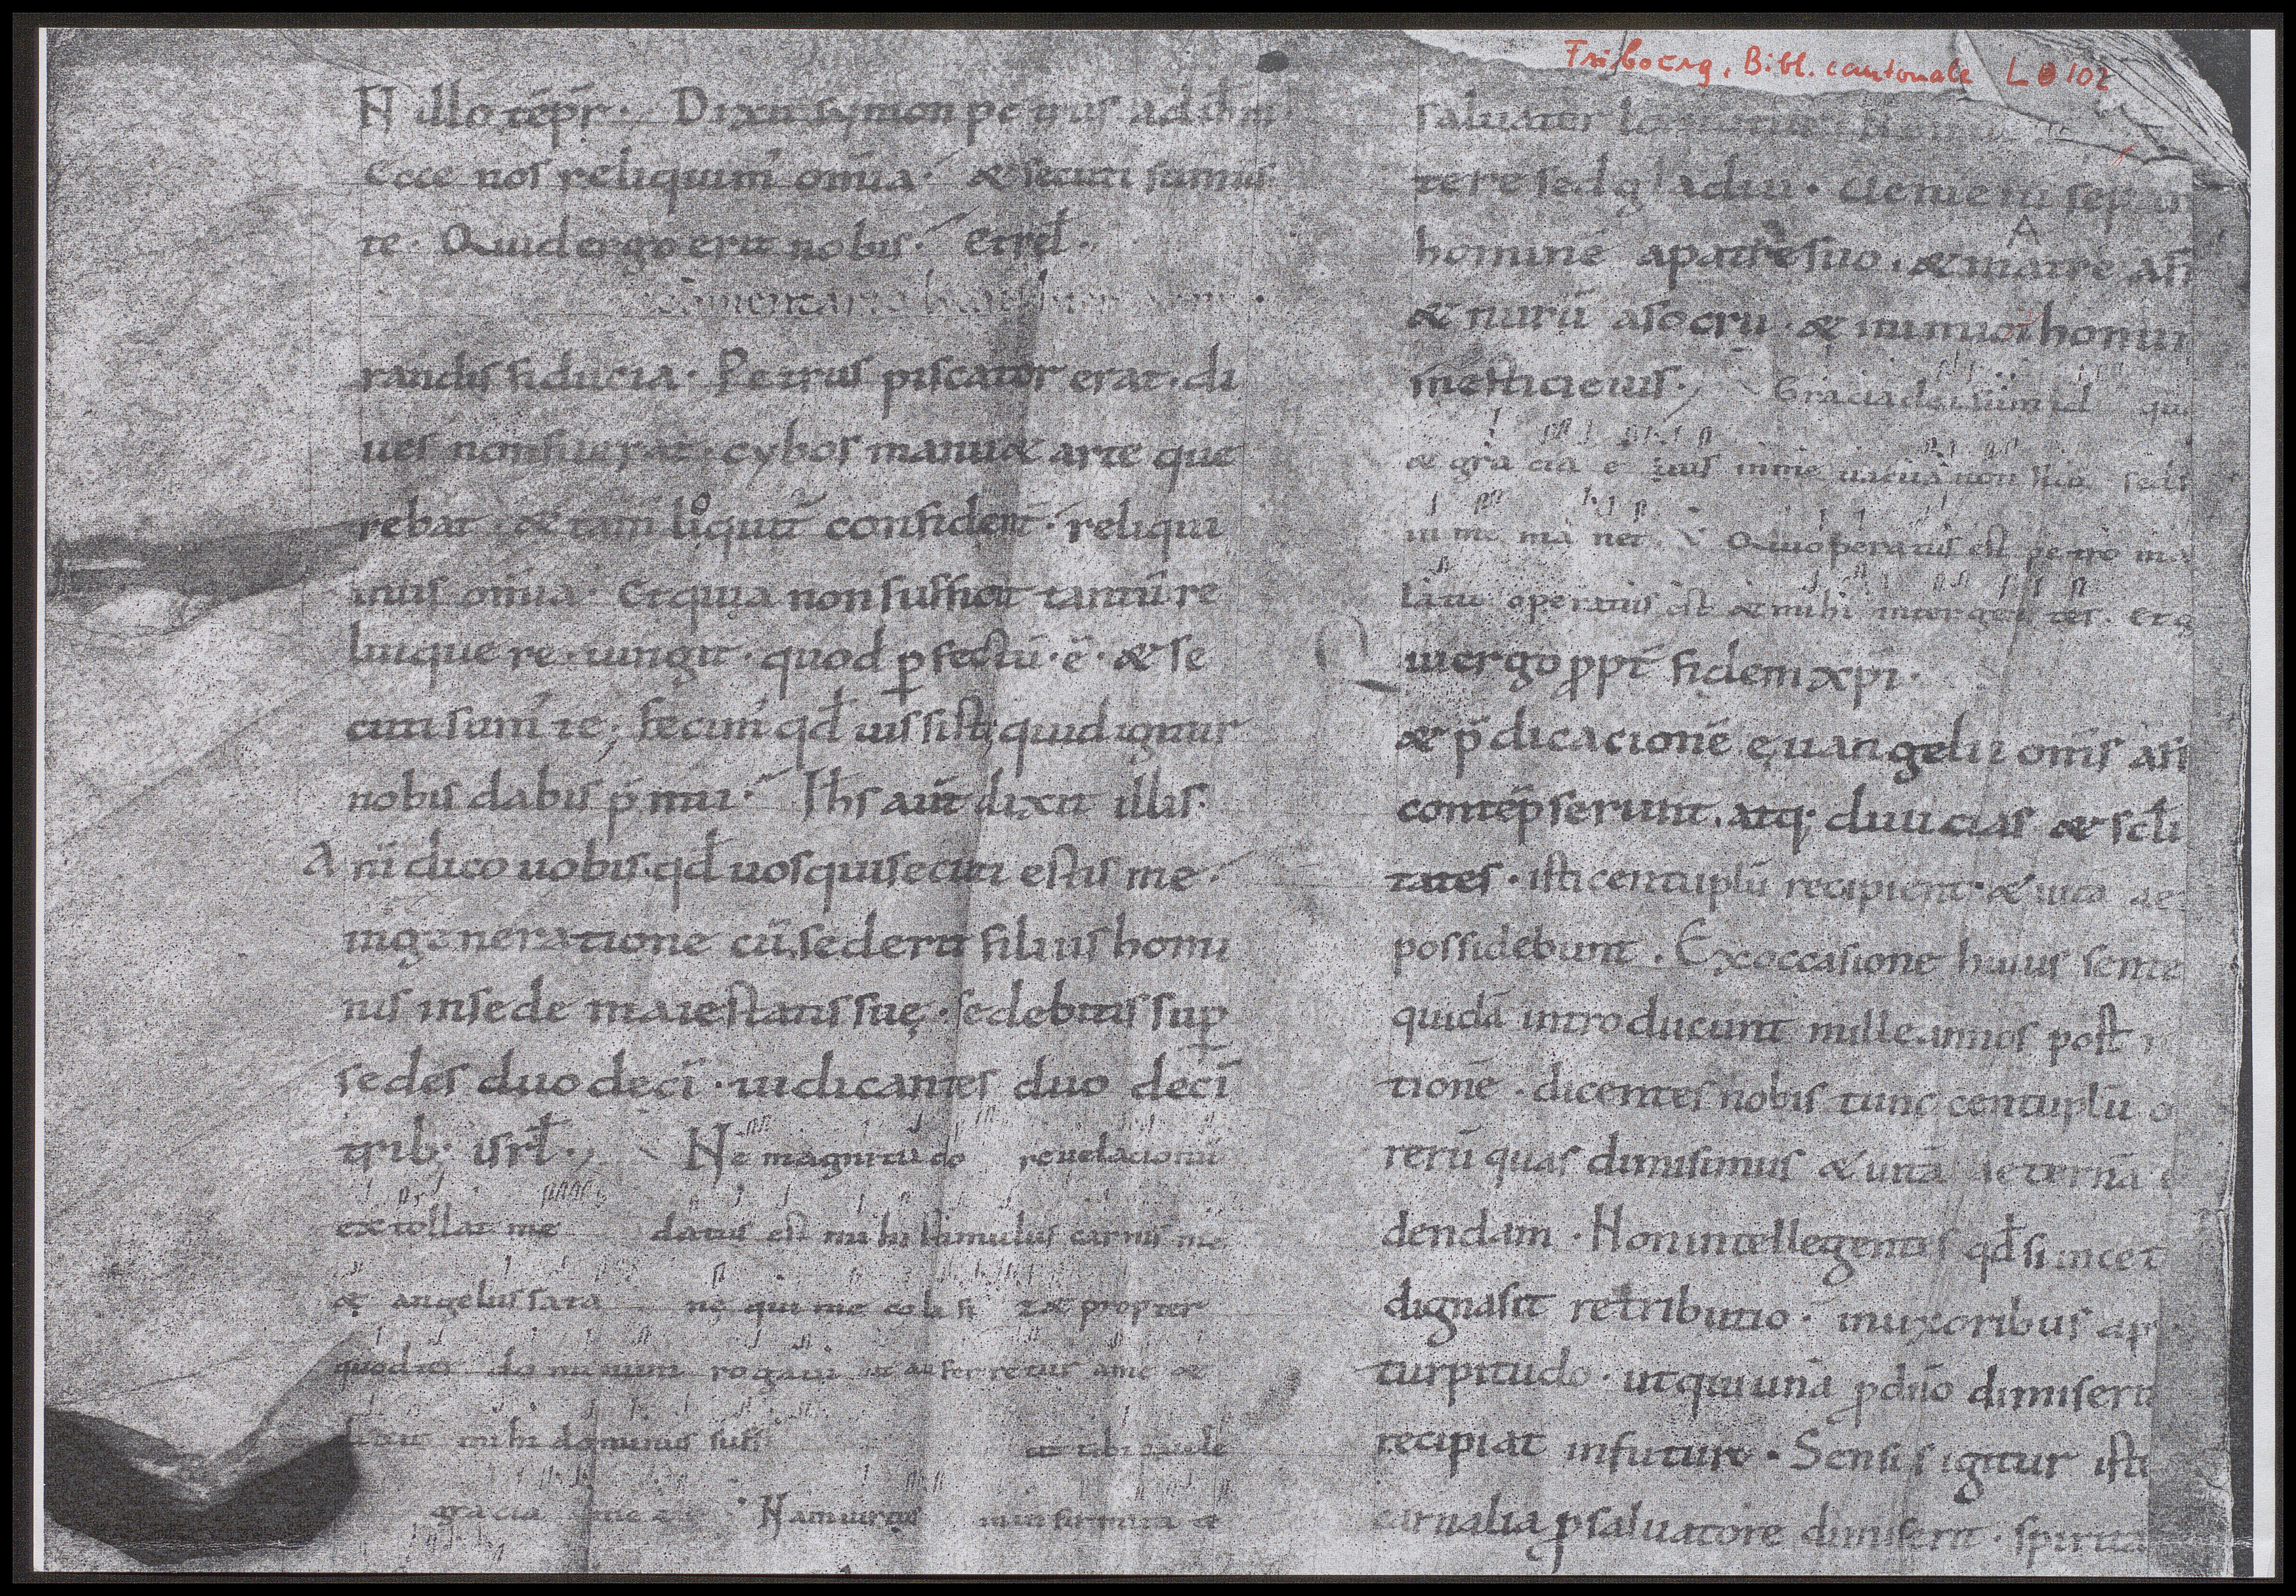 Fribourg, Bibl. cantonale L 102
N illo tēpr̄. Dixit symon petrus ad ihm
Ecce nos reliquim̄ om̄ia. & secuti sumus
te. Quid ergo erit nobis. et rel̄.
randis fiducia. Petrus piscator erat. di
ues non fuerat. cybos manu & arte que
rebat. & tam̄ loquit̄ confident̄. reliqui
mus om̄ia. Et quia non sufficit tantū re
linquere. iungit. quod ꝑfectū. ē. & se
cuti sum̄ te; fecim̄ qđ iussisti, quid igitur
nobis dabis p̄mii. Ihs aūt dixit illis.
A m̄ dico uobis. qđ uos qui secuti estis me.
in generatione cū sederit filius homi
nis in sede maiestatis suę. sedebitis suꝑ
sedes duodecī. iudicantes duodecī
trib; isrł. Ne magnitudo reuelacionū
extollat me datus est mihi stimulus carnis me
& angelus sata nę qui me colafi z& propter
quod ter dominum rogaui ut auferretur a me &
mihi dominus suff tibi paule
gracia mea Nam uirtus in infirmita
saluator
tere sed gladiū. Ueni enī sepa
hominē a patre suo. & matre a fi
& nurū a socru. & inimici homi
mestici eius. Gracia dei sum id qu
& gracia eius in me uacua non fuit sed
in me manet. V Qui operatus est petro in a
latu operatus est & mihi inter gentes. et g
Q ui ergo ꝓpt̄ fidem xpi.
& p̄dicacionē ęuangelii om̄is aff
contēpserunt. atq; diuicias & scłi
tates. isti centuplū recipient. & uitā ae
possidebunt. Ex occasione huius sente
quidā introducunt mille annos post
tionē. dicentes nobis tunc centuplū
rerū quas dimisimus & uitā aeternā
dendam. Non intellegentes qđ si in cet
digna sit retributio. in uxoribus ap
turpitudo. ut qui unā ꝓ dn̄o dimiserit
recipiat in futuro. Sensus igitur iste
carnalia ꝓ saluatore dimiserit. spirita